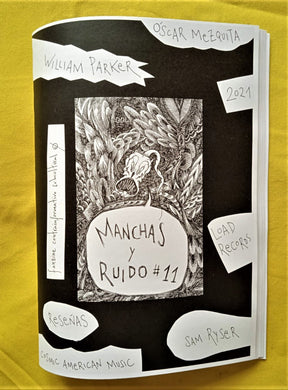 ÓSCAR MEZQUITA
WILLIAM PARKER
2021
fanzine contrainformativo
MANCHAS
Y
RUIDO #11
LOAD
RECORDS
RESEÑAS
SAM RYSER
COSMIC AMERICAN MUSIC